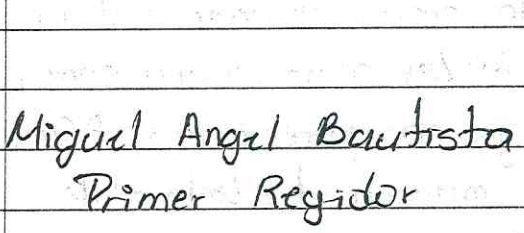 Miguel Angel Bautista
Primer Regidor